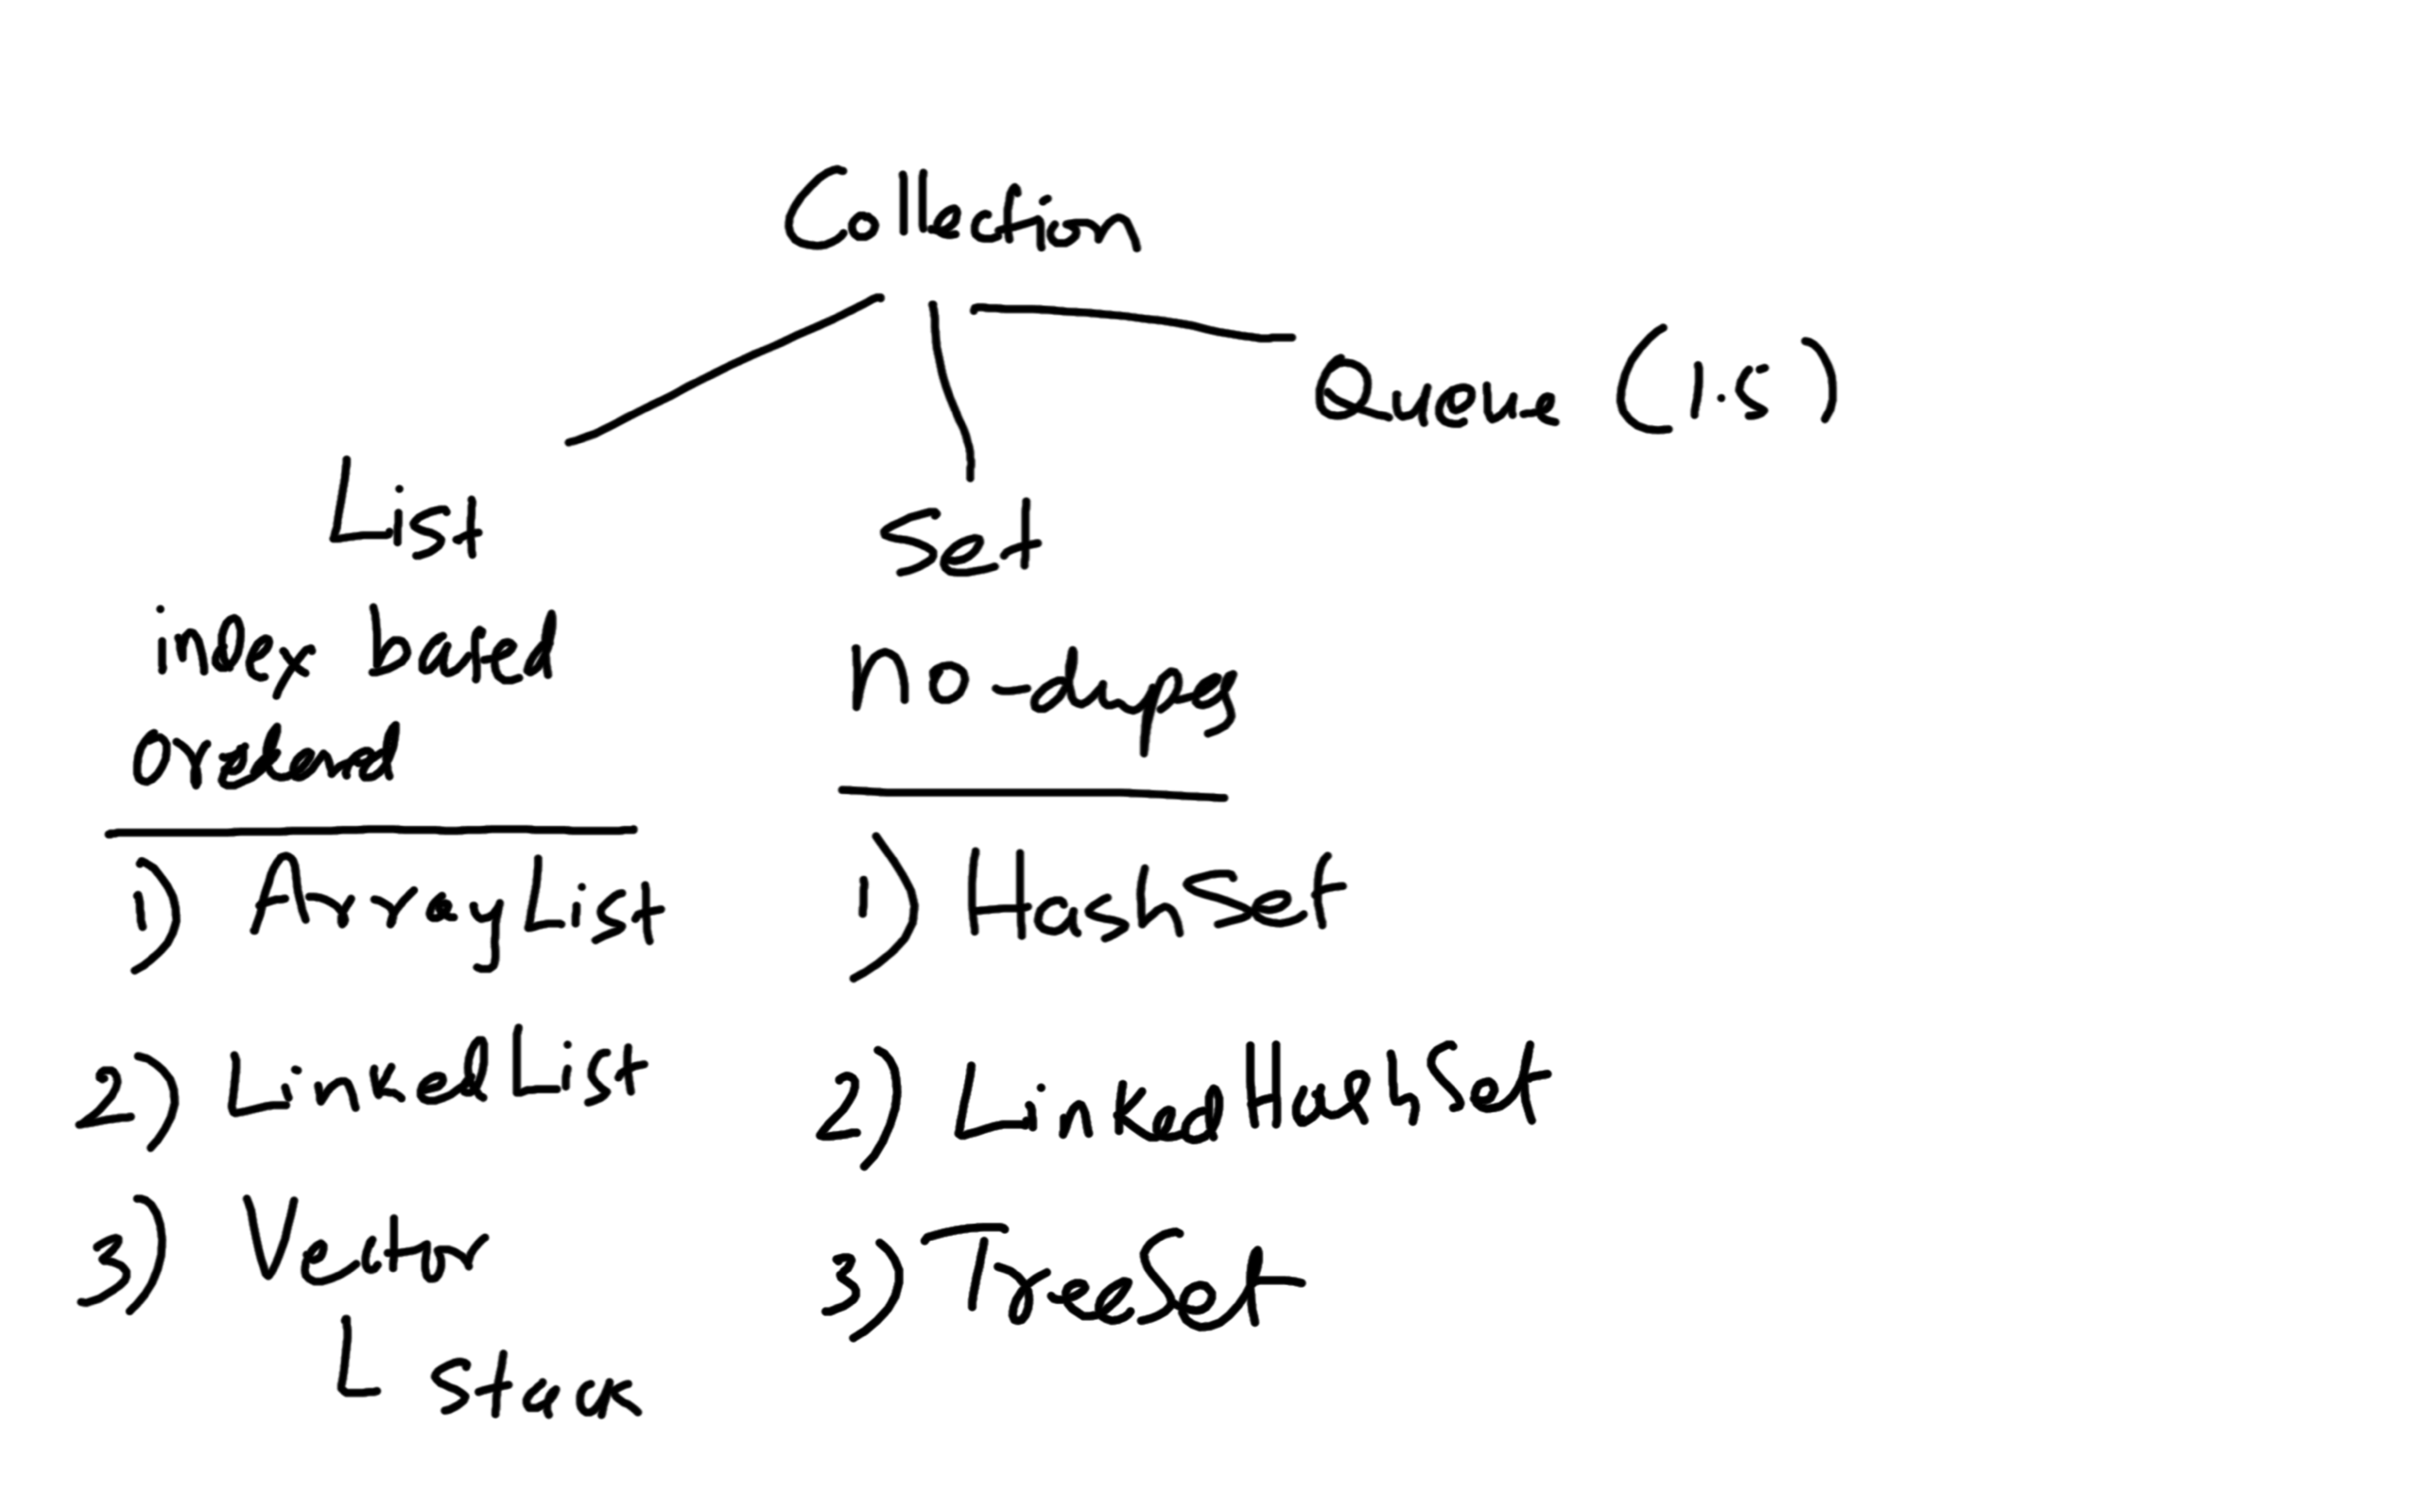 Collection
Queue (1.5)
List
index based
ordered
1) ArrayList
2) LinkedList
3) Vector
L Stack
Set
no-dupes
1) HashSet
2) LinkedHashSet
3) TreeSet